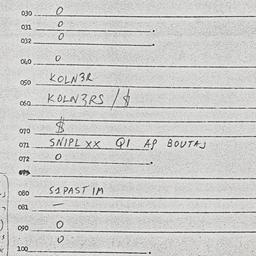 030 0
031 0
032 0
040 0
050 KOLN3R
060 KOLN3RS / $
$
070
071 SNIPL XX QI AP BOUTAJ
072 0
080 S1PAST IM
081 —
090 0
0
100